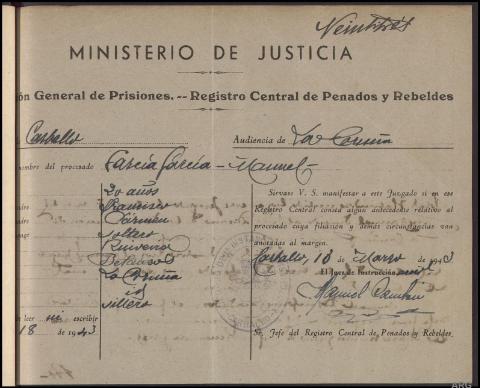 Veintitrés
MINISTERIO DE JUSTICIA
ón General de Prisiones. -- Registro Central de Penados y Rebeldes
Carballo Audiencia de La Coruña
nombre del procesado García García - Manuel -
20 años
Francisco
Carmen
soltero
La Coruña
id
sillero
leer si escribir
18 de 1943
Sírvase V. S. manifestar a este Juzgado si en ese
Registro Central consta algún antecedente relativo al
procesado cuya filiación y demás circunstancias van
anotadas al margen.
Carballo, 18 de Marzo de 1943
El Juez de Instrucción
Manuel
Sr. Jefe del Registro Central de Penados y Rebeldes.
ARG